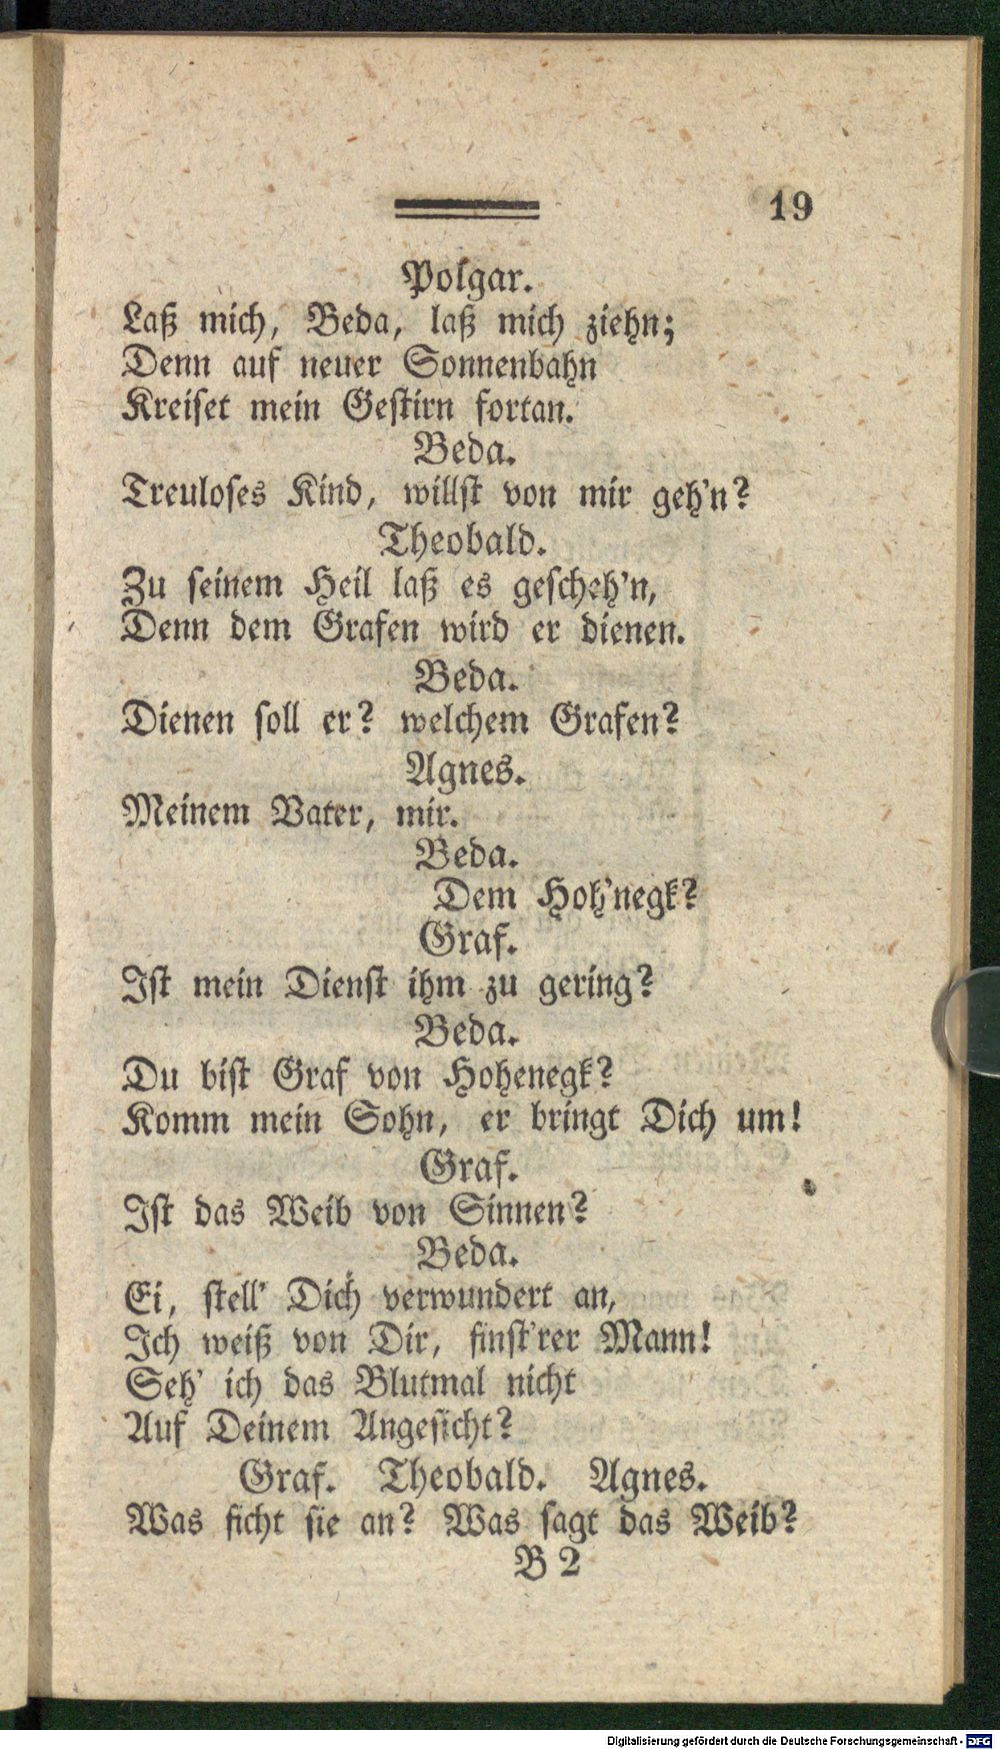 19
Polgar.
Laß mich, Beda, laß mich ziehn;
Denn auf neuer Sonnenbahn
Kreiset mein Gestirn fortan.
Beda.
Treuloses Kind, willst von mir geh'n?
Theobald.
Zu seinem Heil laß es gescheh'n,
Denn dem Grafen wird er dienen.
Beda.
Dienen soll er? welchem Grafen?
Agnes.
Meinem Vater, mir.
Beda.
Dem Hoh'negk?
Graf.
Ist mein Dienst ihm zu gering?
Beda.
Du bist Graf von Hohenegk?
Komm mein Sohn, er bringt Dich um!
Graf.
Ist das Weib von Sinnen?
Beda.
Ei, stell' Dich verwundert an,
Ich weiß von Dir, finst'rer Mann!
Seh' ich das Blutmal nicht
Auf Deinem Angesicht?
Graf. Theobald. Agnes.
Was ficht sie an? Was sagt das Weib?
B 2
Digitalisierung gefördert durch die Deutsche Forschungsgemeinschaft - DFG